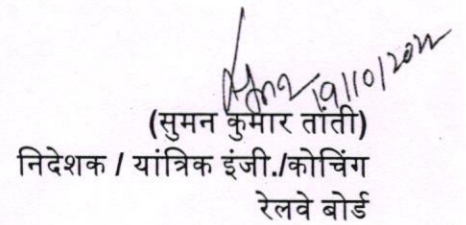 19/10/2022
(सुमन कुमार तांती)
निदेशक / यांत्रिक इंजी./कोचिंग
रेलवे बोर्ड